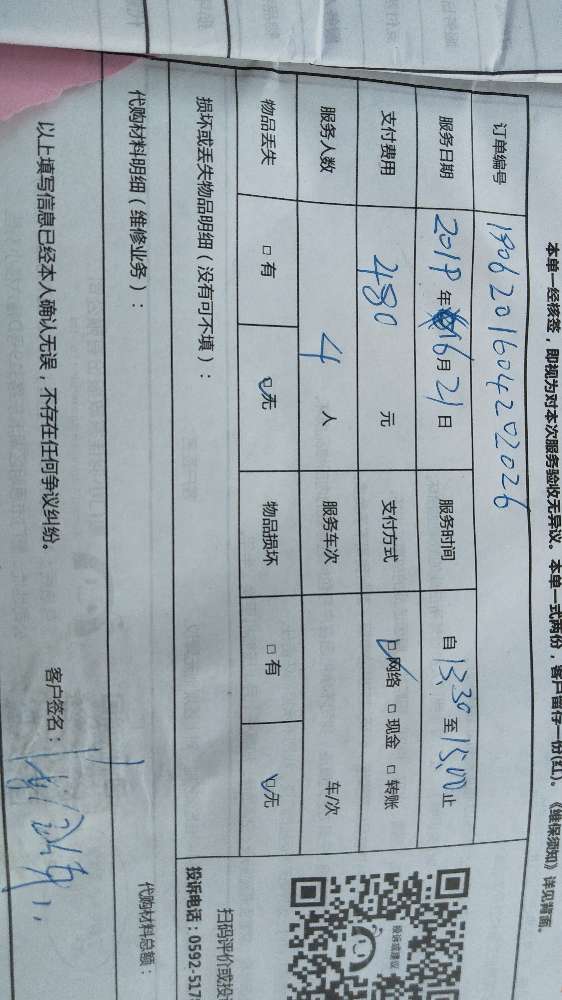 本单一经核签，即视为对本次服务验收无异议。本单一式两份，客户留存一份(红)。《维保须知》详见背面。
订单编号 1906201604202026
服务日期 2019年6月21日 服务时间 自13:30至15:00止
支付费用 480元 支付方式 ☑网络 □现金 □转账
服务人数 4人 服务车次 车/次
物品丢失 □有 ☑无 物品损坏 □有 ☑无
损坏或丢失物品明细（没有可不填）：
代购材料明细（维修业务）： 代购材料总额：
以上填写信息已经本人确认无误，不存在任何争议纠纷。 客户签名：
投诉或建议
扫码评价或投
投诉电话：0592-517